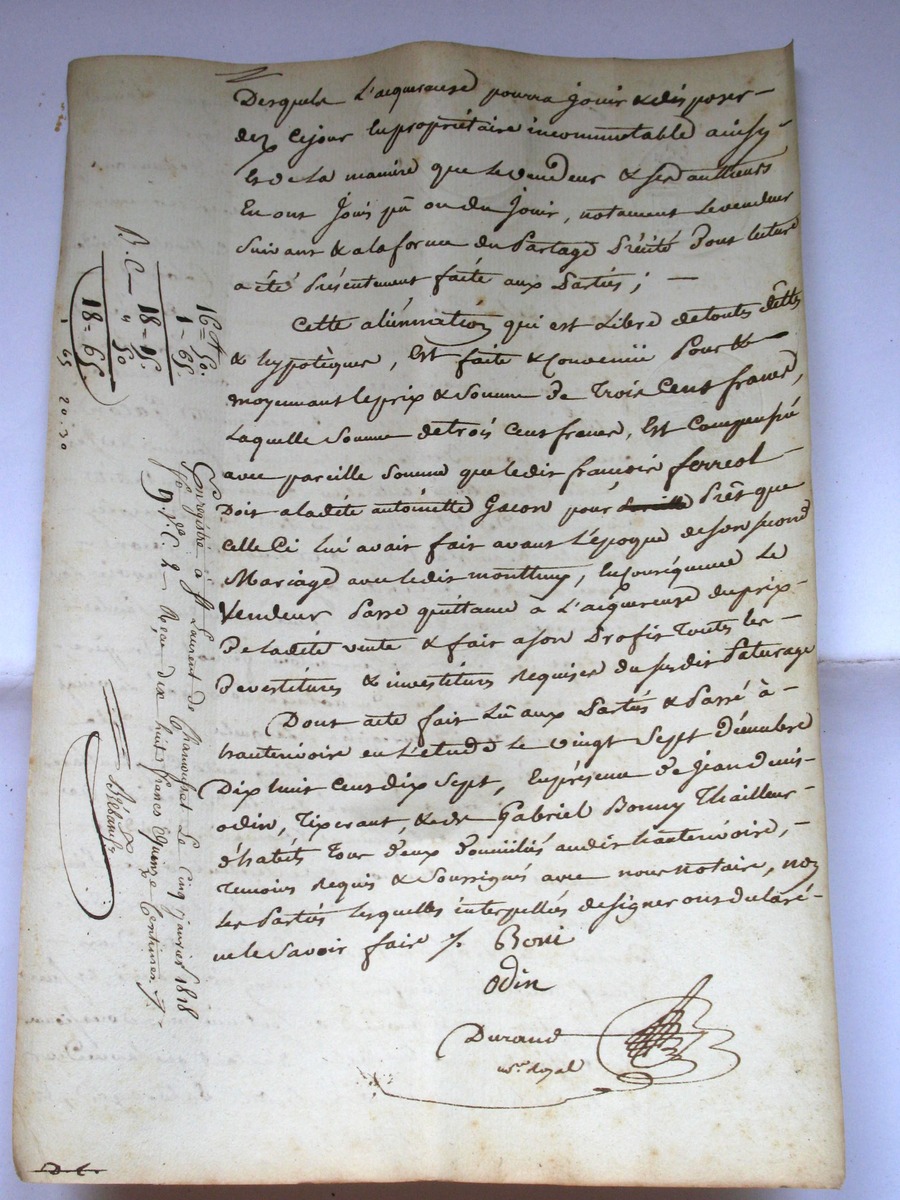 Desquels L'acquereuse pourra jouir & disposer –
dez ce jour En propriétaire incommutable ainsy –
Et de La maniere que Le vendeur & ses autheurs
En ont Jouis pû ou du Jouir, notament Le vendeur
suivant & a la forme du Partage Précité Dont lecture
a été Présentement faite aux Parties; –
Cette aliénnation qui est Libre de toutes dêttes
& hypotèques, Est faite & Convenüe Pour &
moyennant le prix & Somme De Trois Cent francs,
Laquelle Somme de trois Cent francs, Est Compensée
avec pareille Somme que ledit francois ferreol –
Doit a ladite antoinette Gacon pour Prêt que
celle Ci lui avait fait avant L'époque de son second
Mariage avec ledit monthuy, En Conséquence Le
Vendeur Passe quittance a L'acquereuse du prix –
De Ladite vente & fait a son Profit Toutes Les –
Devestitures & investiturs Requises du susdit Paturage
Dont acte fait Lû aux Parties & Passé à –
hauterivoire en L'etude Le vingt Sept Décembre
Dix huit Cent dix Sept, En présence De Jean denis
odin, Tixerant, & de Gabriel Bonny Thailleur –
d'habits Tous Deux Domiciliés audit hauterivoire, –
Temoins Requis & Soussignés avec nous notaire, non
Les Parties Lesquelles interpellées de signer ont declaré –
ne le Savoir faire /. Boni
Odin
Durand
nre royal
Enregistré à St Laurent de Chamousset Le Cinq janvier 1818
fo Vo C. 2 – Reçu dix huit francs quinze Centimes /.
16 = 50.
1 – 65
18 – 15.
B. C – " 50
18 = 65.
1 65
20.30